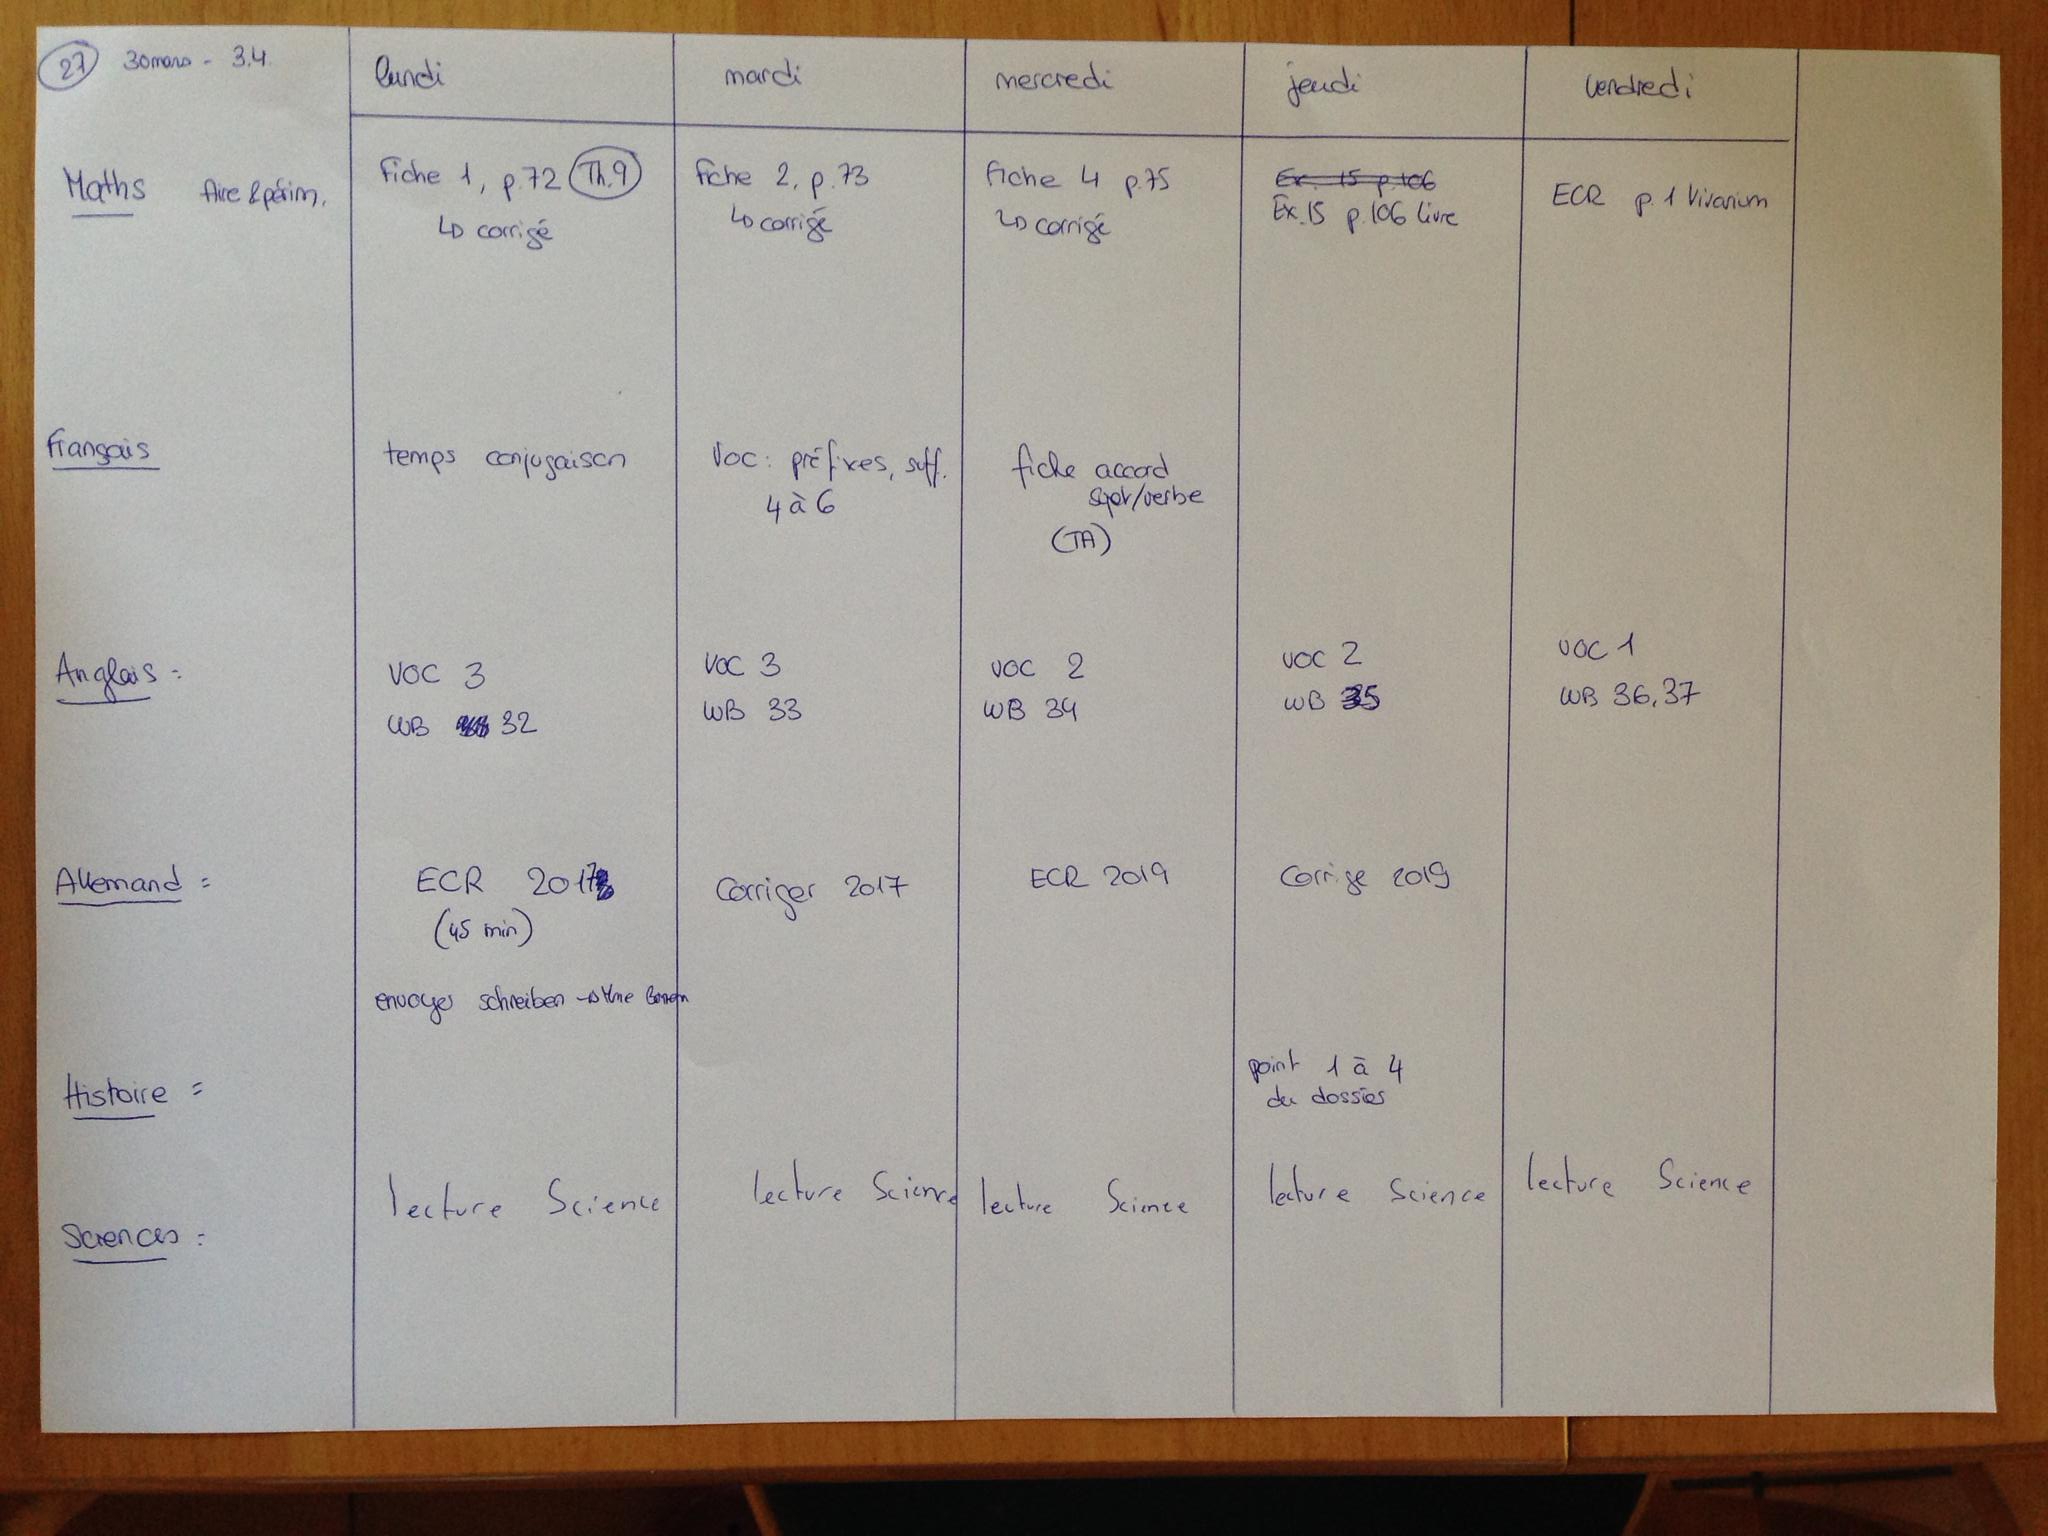 27 30 mars - 3.4. lundi mardi mercredi jeudi vendredi
Maths Aire & périm. Fiche 1, p.72 Th.9 Fiche 2, p.73 Fiche 4 p.75 Ex. 15 p.106 ECR p.1 Vivarium
↳ corrigé ↳ corrigé ↳ corrigé Ex.15 p.106 livre
Français temps conjugaison Voc: préfixes, suff. fiche accord
4 à 6 sujet/verbe
(TA)
Anglais: VOC 3 VOC 3 VOC 2 VOC 2 VOC 1
WB 32 WB 33 WB 34 WB 35 WB 36,37
Allemand: ECR 2017 Corriger 2017 ECR 2019 Corrige 2019
(45 min)
envoyer schreiben → Mme
Histoire: point 1 à 4
du dossier
Sciences: lecture Science lecture Science lecture Science lecture Science lecture Science